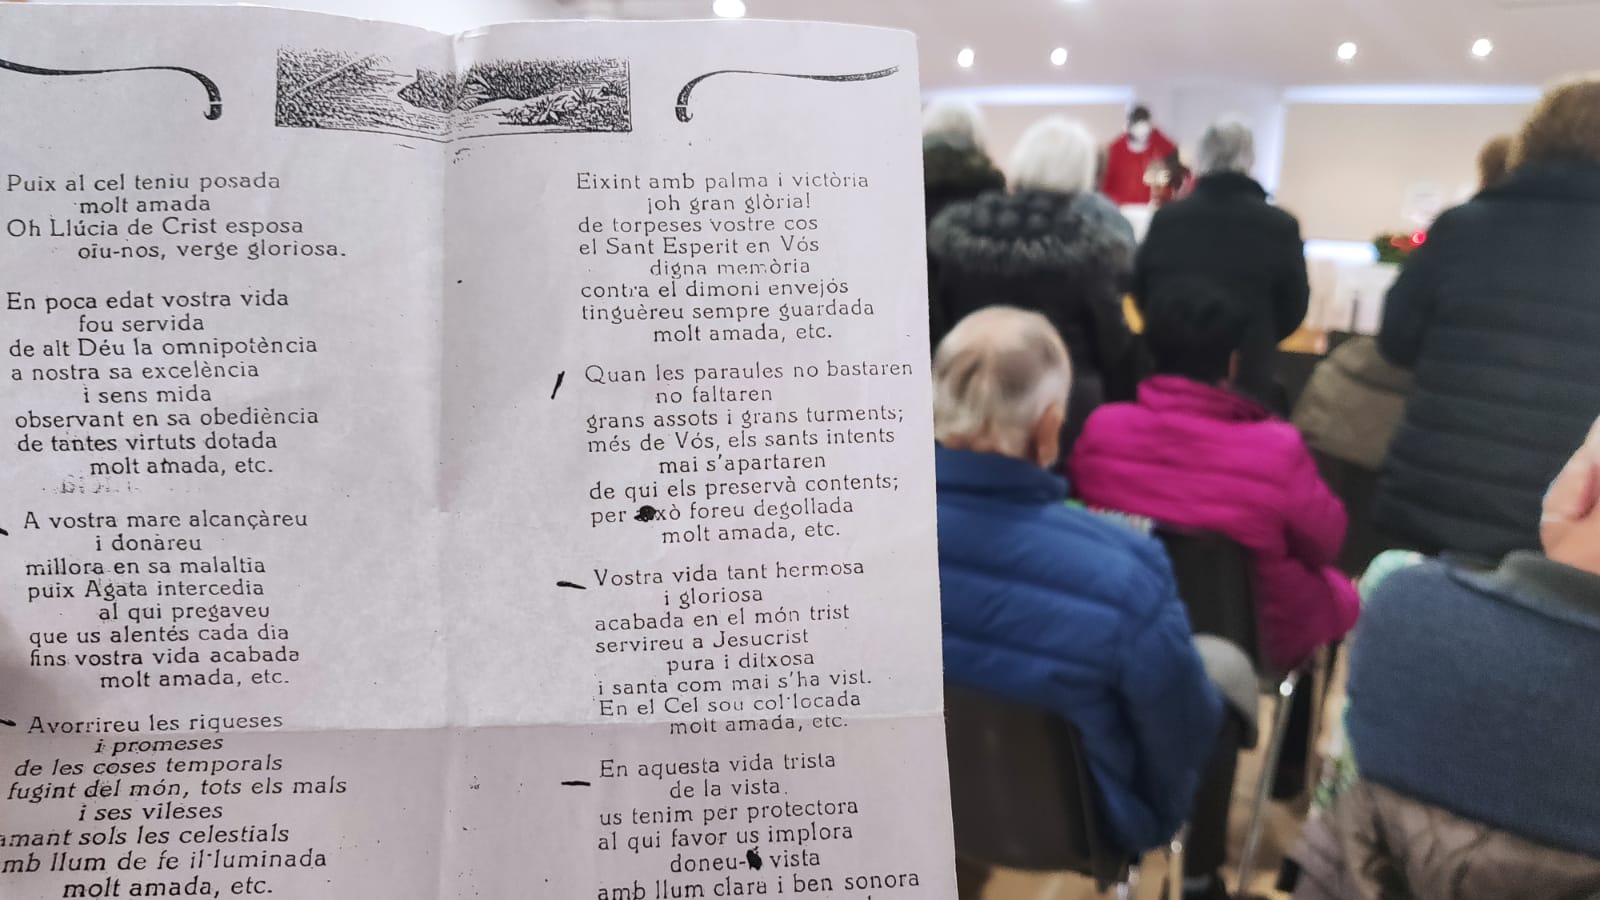 Puix al cel teniu posada
molt amada
Oh Llúcia de Crist esposa
oïu-nos, verge gloriosa.
En poca edat vostra vida
fou servida
de alt Déu la omnipotència
a nostra sa excelència
i sens mida
observant en sa obediència
de tantes virtuts dotada
molt amada, etc.
A vostra mare alcançàreu
i donàreu
millora en sa malaltia
puix Agata intercedia
al qui pregaveu
que us alentés cada dia
fins vostra vida acabada
molt amada, etc.
Avorrireu les riqueses
i promeses
de les coses temporals
fugint del món, tots els mals
i ses vileses
amant sols les celestials
mb llum de fe il·luminada
molt amada, etc.
Eixint amb palma i victòria
¡oh gran glòria!
de torpeses vostre cos
el Sant Esperit en Vós
digna memòria
contra el dimoni envejós
tinguèreu sempre guardada
molt amada, etc.
Quan les paraules no bastaren
no faltaren
grans assots i grans turments;
més de Vós, els sants intents
mai s'apartaren
de qui els preservà contents;
per això foreu degollada
molt amada, etc.
Vostra vida tant hermosa
i gloriosa
acabada en el món trist
servireu a Jesucrist
pura i ditxosa
i santa com mai s'ha vist.
En el Cel sou col·locada
molt amada, etc.
En aquesta vida trista
de la vista
us tenim per protectora
al qui favor us implora
doneu- vista
amb llum clara i ben sonora